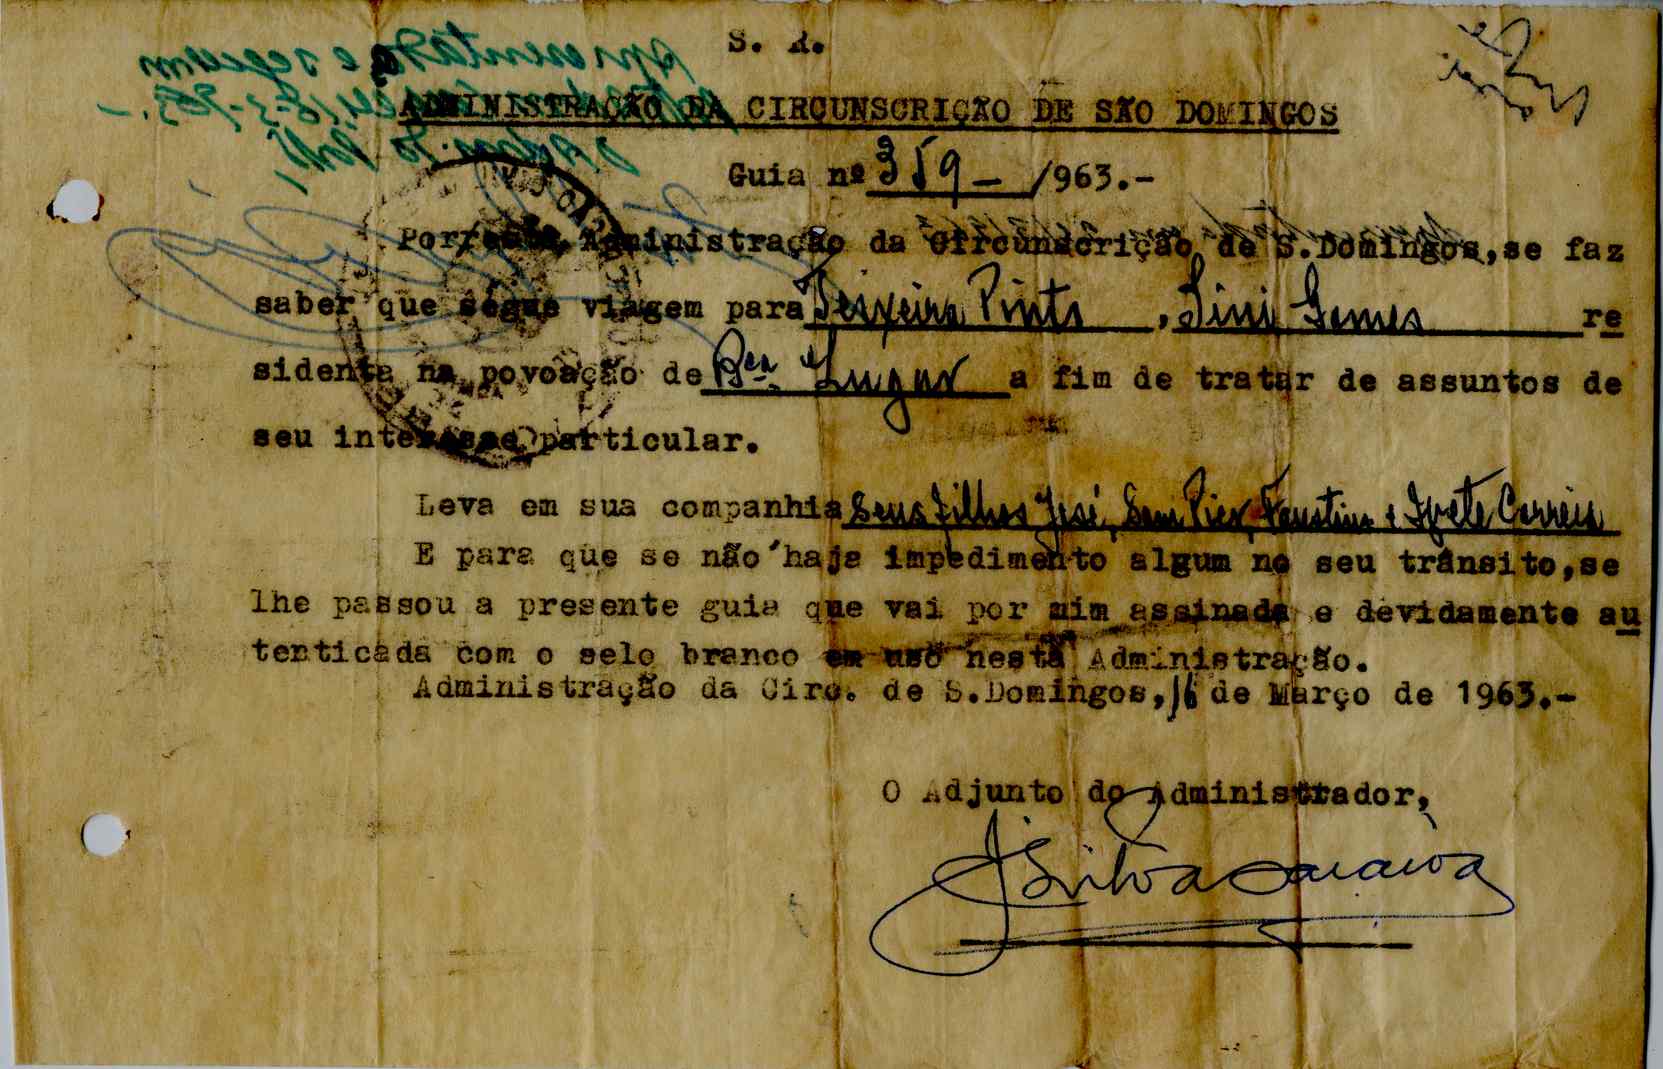 S. R.
ADMINISTRAÇÃO DA CIRCUNSCRIÇÃO DE SÃO DOMINGOS
Guia nº 359 - /963.-
Por esta Administração da Circunscrição de S.Domingos,se faz
saber que segue viagem para Teixeira Pinto , Gomes re
sidente na povoação de Lugar a fim de tratar de assuntos de
seu interesse particular.
Leva em sua companhia Seus filhos José, Faustino e Ivete Correia
E para que se não haja impedimento algum no seu trânsito,se
lhe passou a presente guia que vai por mim assinada e devidamente au
tenticada com o selo branco em uso nesta Administração.
Administração da Circ. de S.Domingos,16 de Março de 1963.-
O Adjunto do Administrador,
JSilva Saraiva